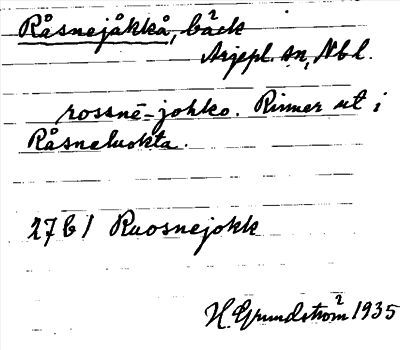 Råsnejåkkå, bäck
Arjepl. sn, Nbl.
rossnē-johko. Rinner ut i
Råsneluokta.
27 b 1 Ruosnejokk
H. Grundström 1935